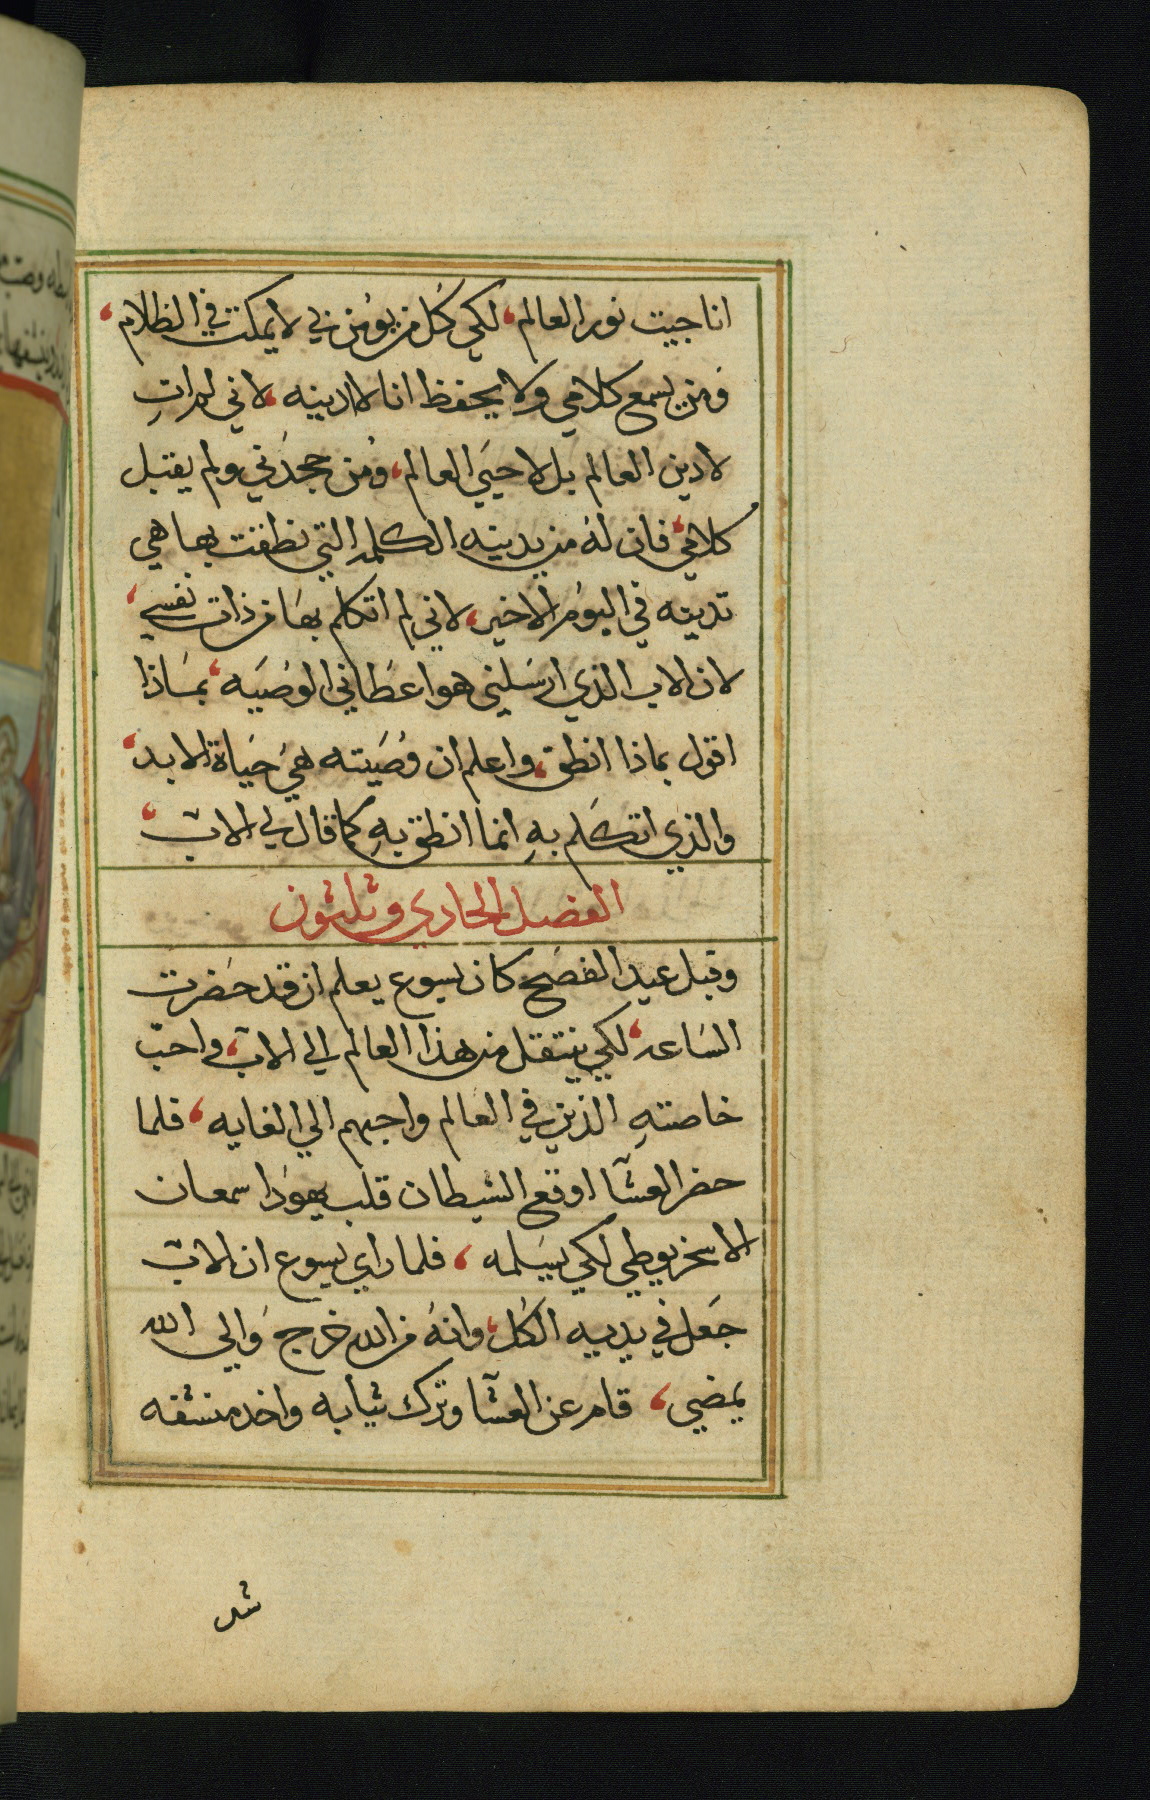 انا جيت نور العالم، لكي كُل من يومن بي لا يمكت في الظلام،
ومن يسمع كلامي ولا يحفظ انا لا ادينه، لاني لم اتِ
لادين العالم بل لاحيَي العالم، ومن جحدَني ولم يقبل
كلامي، فان لهُ من يدينه الكلمه التي نطقت بها هي
تدينه في اليوُم الاخير، لاني لم اتكلم بهَا من ذات نفسي،
لان الاب الذي ارسَلني هو اعطَاني الوصَيَه، بمَاذا
اقول بماذا انطق، واعلم ان وصَيَته هيَ حَيَاة الابد،
والذي اتكَلم بهِ انما انطق بهِ كما قال لي الاب،
الفصل الحادي وثلثون
وقبل عيد الفصَح كان يسوع يعلم ان قد حَضرت
السَاعه، لكي ينتقل من هذا العالم الي الاب، واحب
خاصتهِ الذين في العَالم واحبهم الي الغايه، فلما
حضر العشآ اوقع الشيطان قلب يهوَدا سمعان
الاسخريوطي لكي يسَلمه، فلما راي يسوع ان الاب
جَعل في يديه الكُل، وانهُ من الله خرج وَالي الله
يمضي، قام عن العشآ وترك ثيابه واخد منشفه
شد